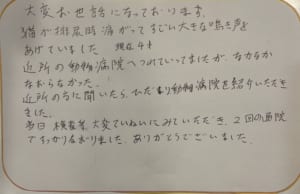 大変お世話になっております。
猫が排尿時痛がってすごい大きな鳴き声を
あげていました。 現在4才
近所の動物病院へつれていってましたが、なかなか
なおらなかった!
近所の方に聞いたら、ひだまり動物病院を紹介いただき
ました。
当日 検査等、大変ていねいにみていただき、2回の通院
ですっかりなおりました。ありがとうございました。